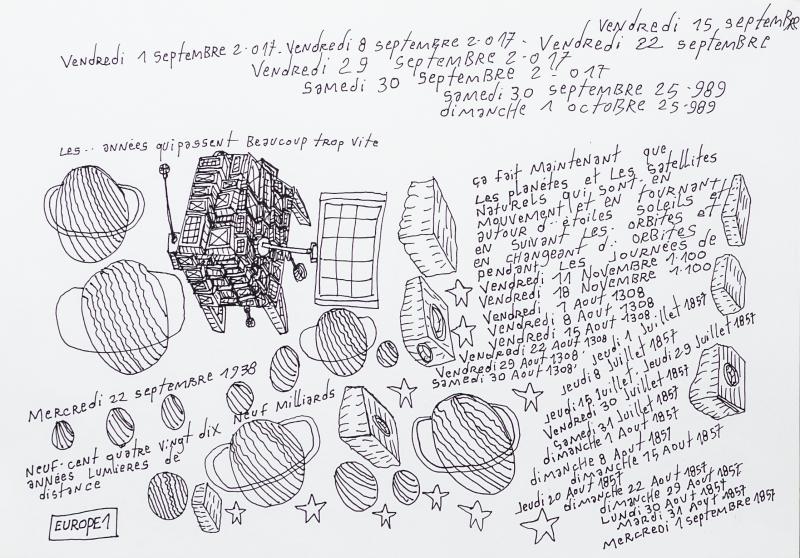 Vendredi 15 septembre
Vendredi 1 septembre 2.017. Vendredi 8 septembre 2.017. Vendredi 22 septembre
Vendredi 29 septembre 2.017
samedi 30 septembre 2.017
samedi 30 septembre 25.989
dimanche 1 octobre 25.989
Les.. années qui passent Beaucoup trop vite
ça fait Maintenant que
Les planètes et Les satellites
Naturels qui sont en
mouvement et en tournant
autour d.. étoiles soleils et
en suivant Les orbites et
en changeant d.. orbites
pendant Les Journées de
Vendredi 11 Novembre 1.100
Vendredi 18 Novembre 1.100
Vendredi 1 Aout 1308
Vendredi 8 Aout 1308
Vendredi 15 Aout 1308.
Vendredi 22 Aout 1308
Vendredi 29 Aout 1308. jeudi 1 Juillet 1857
samedi 30 Aout 1308. jeudi 8 Juillet 1857
jeudi 15 Juillet. Jeudi 29 Juillet 1857
Vendredi 30 Juillet 1857
samedi 31 Juillet 1857
dimanche 1 Aout 1857
dimanche 8 Aout 1857
dimanche 15 Aout 1857
Jeudi 20 Aout 1857
dimanche 22 Aout 1857
dimanche 29 Aout 1857
Lundi 30 Aout 1857
Mardi 31 Aout 1857
Mercredi 1 septembre 1857
Mercredi 22 septembre 1938
Neuf.cent quatre vingt dix Neuf Milliards
années Lumieres de
distance
EUROPE1